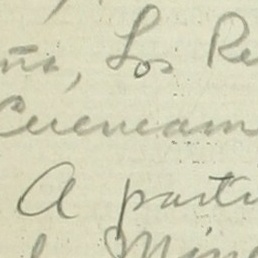 ña, Los Re
Cuencam
A partir
Min